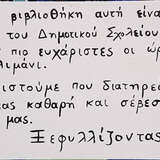 βιβλιοθήκη αυτή είνα
του Δημοτικού Σχολείου
πιο ευχάριστες οι ώρ
λιμάνι.
ιστούμε που διατηρεί
τας καθαρή και σέβεσ
μας.
Ξεφυλλίζοντας